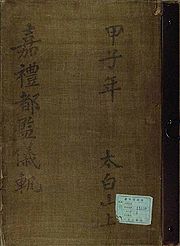 甲子年
太白山上
嘉禮都監儀軌